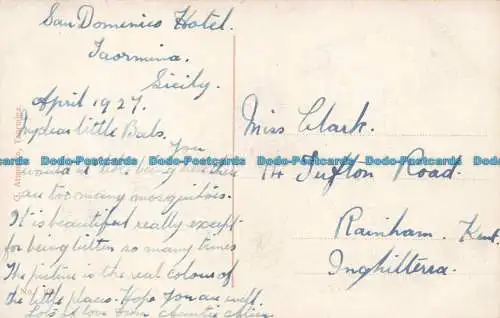 San Domenico Hotel.
Taormina.
Sicily.
April 1927.
My dear little Babs. You
would not like being here there
are too many mosquitoes.
It is beautiful really except
for being bitten so many times
The picture is the real colour of
the little places. Hope you are well.
Lots of love from Auntie
Miss Clark.
14 Tufton Road.
Rainham. Kent.
Inghilterra.
Dodo-Postcards Dodo-Postcards Dodo-Postcards Dodo-Postcards Dodo-Postcards